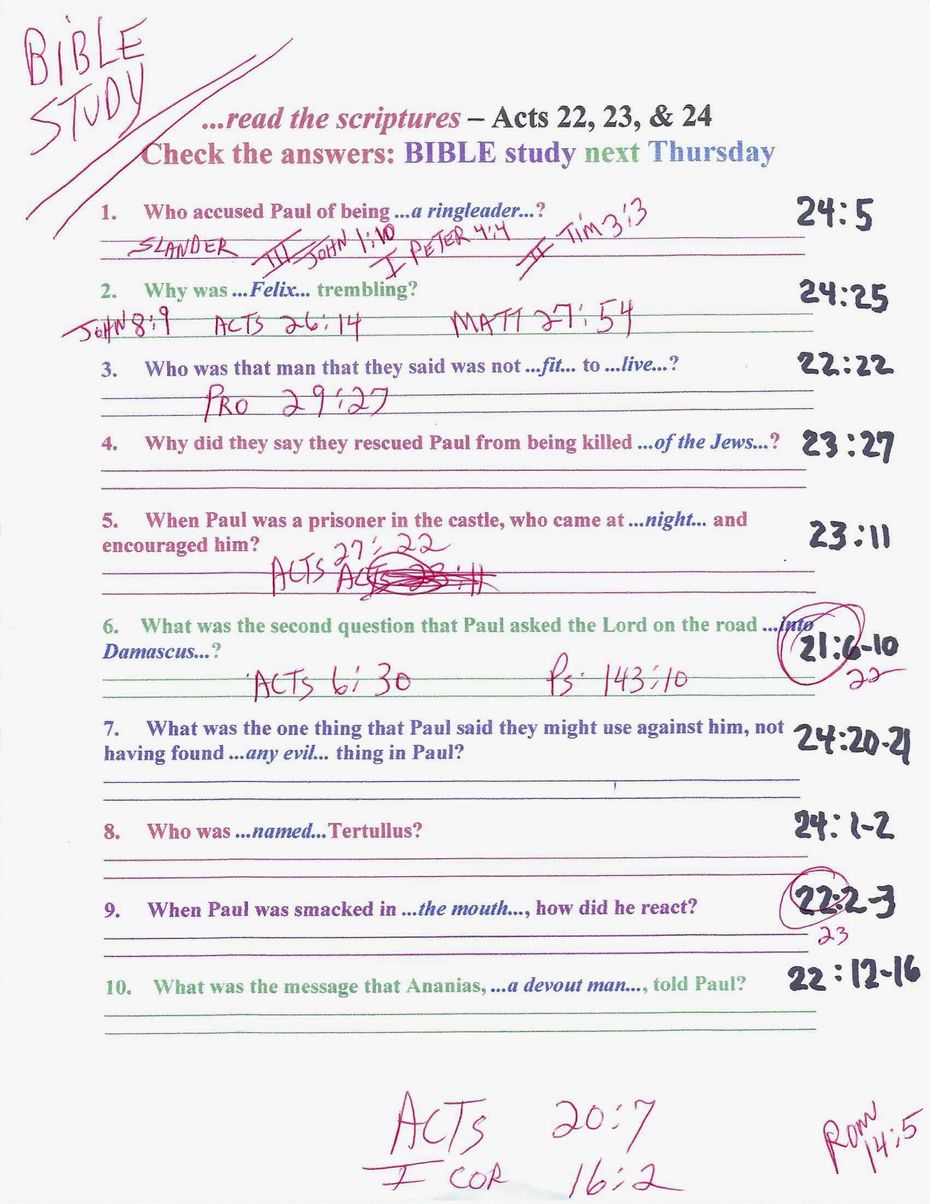 BIBLE
STUDY
...read the scriptures – Acts 22, 23, & 24
Check the answers: BIBLE study next Thursday
1. Who accused Paul of being ...a ringleader...? 24:5
SLANDER III JOHN 1:10 I PETER 4:4 II TIM 3:3
2. Why was ...Felix... trembling? 24:25
JOHN 8:9 ACTS 26:14 MATT 27:54
3. Who was that man that they said was not ...fit... to ...live...? 22:22
PRO 29:27
4. Why did they say they rescued Paul from being killed ...of the Jews...? 23:27
5. When Paul was a prisoner in the castle, who came at ...night... and
encouraged him? 23:11
ACTS 27:22
ACTS 23:11
6. What was the second question that Paul asked the Lord on the road ...into
Damascus...? 21:6-10
22
ACTS 6:30 Ps. 143:10
7. What was the one thing that Paul said they might use against him, not
having found ...any evil... thing in Paul? 24:20-21
8. Who was ...named...Tertullus? 24:1-2
9. When Paul was smacked in ...the mouth..., how did he react? 22:2-3
23
10. What was the message that Ananias, ...a devout man..., told Paul? 22:12-16
ACTS 20:7
I COR 16:2
ROM
14:5